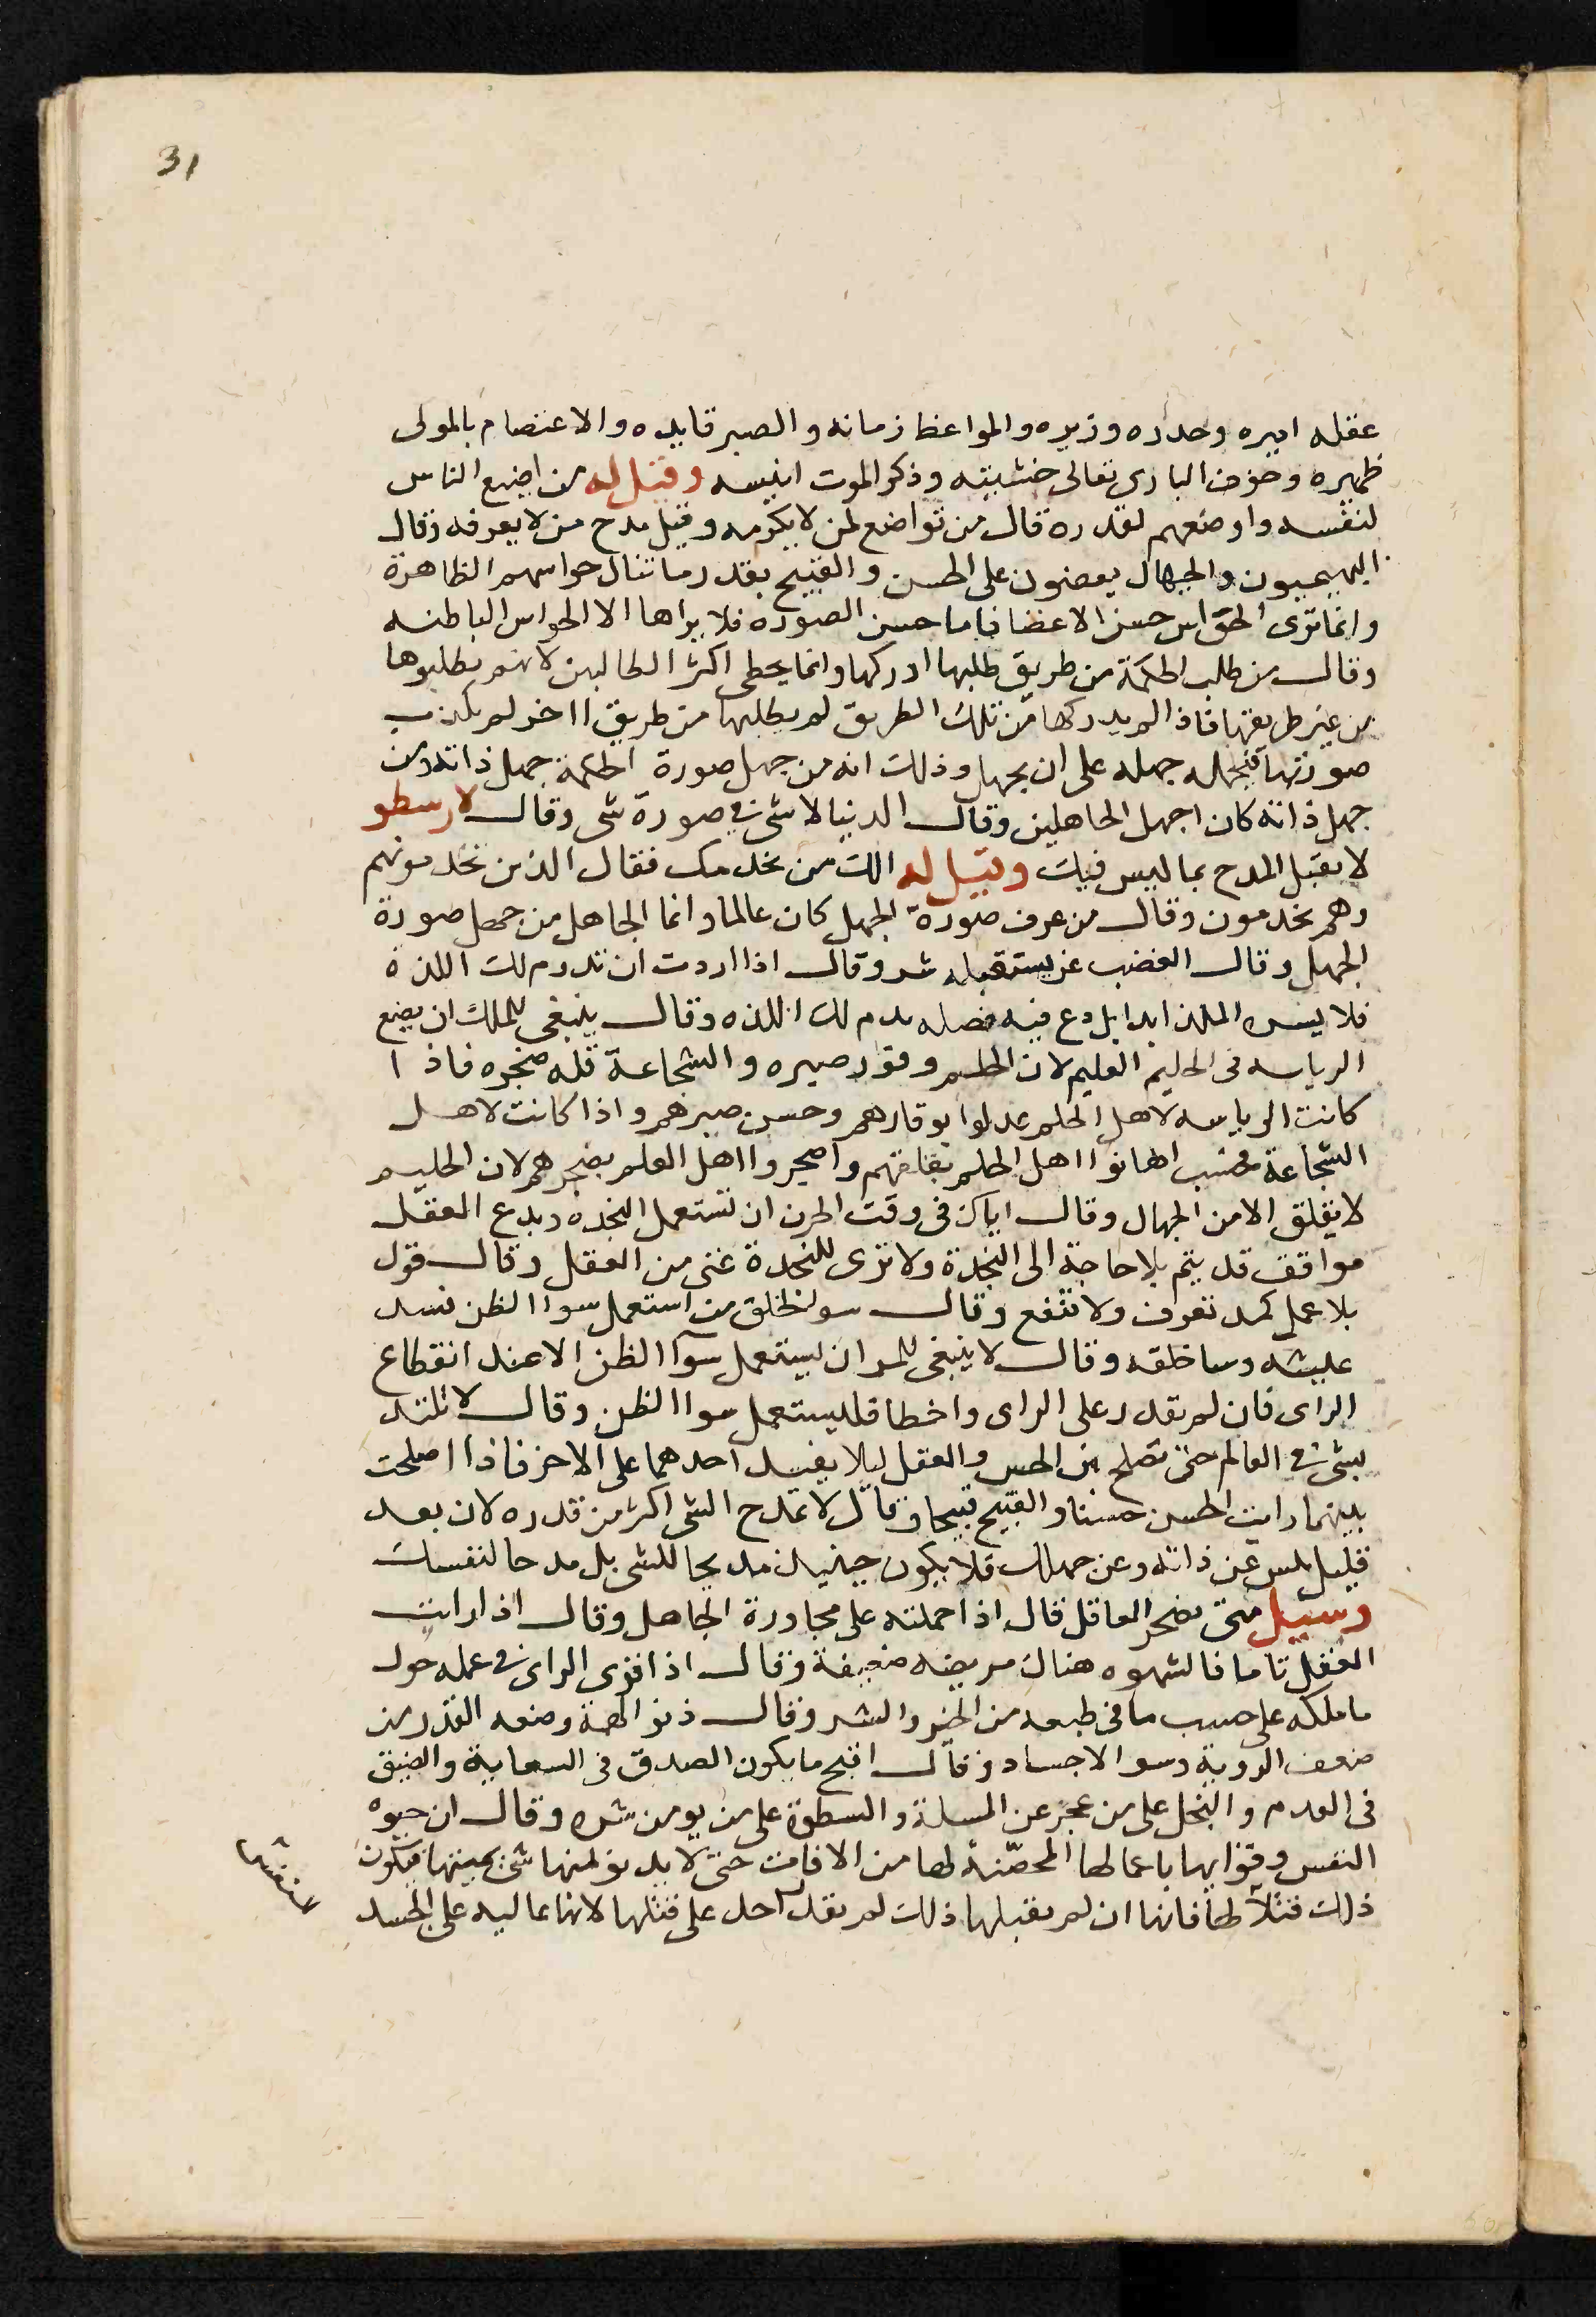 31
عقله اميره وحدره وزيره والمواعظ زمانه والصبر قايده والاعتصام بالمولى
ظهيره وخوف البارى تعالى خشيته وذكر الموت انيسه وقيل له من اضيع الناس
لنفسه واوضعهم لقدره قال من تواضع لمن لا يكرمه وقبل مدح من لا يعرفه وقال
البهيميون والجهال يقضون على الحسن والقبيح بقدر ما تنال حواسهم الظاهرة
وانما ترى الحواس حسن الاعضا فاما حسن الصورة فلا يراها الا الحواس الباطنه
وقال من طلب الحكمة من طريق طلبها ادركها وانما يخطى اكثر الطالبين لانهم يطلبوها
من غير طريقها فاذا لم يدركها من تلك الطريق لم يطلبها من طريق اخر لم يكذب
صورتها فيحمله جهله على ان يجهل وذلك انه من جهل صورة الحكمة جهل ذاته ومن
جهل ذاته كان اجهل الجاهلين وقال الدنيا لا شى فى صورة شى وقال لارسطو
لا تقبل المدح بما ليس فيك وقيل له الك من يخدمك فقال الذين تخدمونهم
وهم يخدمون وقال من عرف صورة الجهل كان عالما وانما الجاهل من جهل صورة
الجهل وقال الغضب عن يستقبله شر وقال اذا اردت ان تدوم لك اللذة
فلا يستوف الملتذ ابدا بل دع فيه فضله يدم لك اللذه وقال ينبغى للملك ان يضع
الرياسه فى الحليم العليم لان الحلم وقور صبره والشجاعة قله ضجره فاذا
كانت الرياسه لاهل الحلم عدلوا بوقارهم وحسن صبرهم واذا كانت لاهل
الشجاعة فحسب اهانوا اهل الحلم بقلقهم واضجروا اهل العلم بضجرهم لان الحليم
لا يقلق الا من الجهال وقال اياك فى وقت الحرب ان تستعمل النجده وتدع العقل
مواقف قد يتم بلا حاجة الى النجدة ولا ترى للنجدة غنى من العقل وقال قول
بلا عمل كمد تعرف ولا تنفع وقال سو الخلق من استعمل سوا الظن فسد
عليشه وسا خلقه وقال لا ينبغى للمر ان يستعمل سوا الظن الا عند انقطاع
الراى فان لم تقدر على الراى واخطا فليستعمل سوا الظن وقال لا تلتذ
بشى فى العالم حتى تصلح بين الحس والعقل ليلا يفسد احدهما على الاخر فاذا اصلحت
بينهما رايت الحسن حسنا والقبيح قبيحا وقال لا تمدح الشى اكثر من قدره لان بعد
قليل يلس عن ذاته وعن جهلك فلا يكون حينيذ مديحا للشى بل مدحا لنفسك
وسيل متى يضجر العاقل قال اذا حملته على مجاورة الجاهل وقال اذا رايت
العقل تاما فالشهوه هناك مريضه ضعيفة وقال اذا قوى الراى فى عمله حول
ما ملكه على حسب ما فى طبعه من الخير والشر وقال ذنو الهمة وضعه القدر من
ضعف الروية وسو الاجساد وقال اقبح ما يكون الصدق فى السعاية والضيق
فى العدم والبخل على من عجز عن المسلة والسطوة على من يومن شره وقال ان حيوه
النفس وقوايها باعمالها المحصّنة لها من الافات حتى لا يدبو لمنها شى بعينها فيكون
ذلك قتلاً لها فانها ان لم يقبلها ذلك لم يقدر احد على قتلها لانها عاليه على الجسد